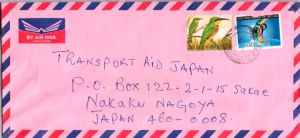 BY AIR MAIL
TRANSPORT AID JAPAN
P.O. BOX 122-2-1-15 Sakae
NAKAKU NAGOYA
JAPAN 460-0008.